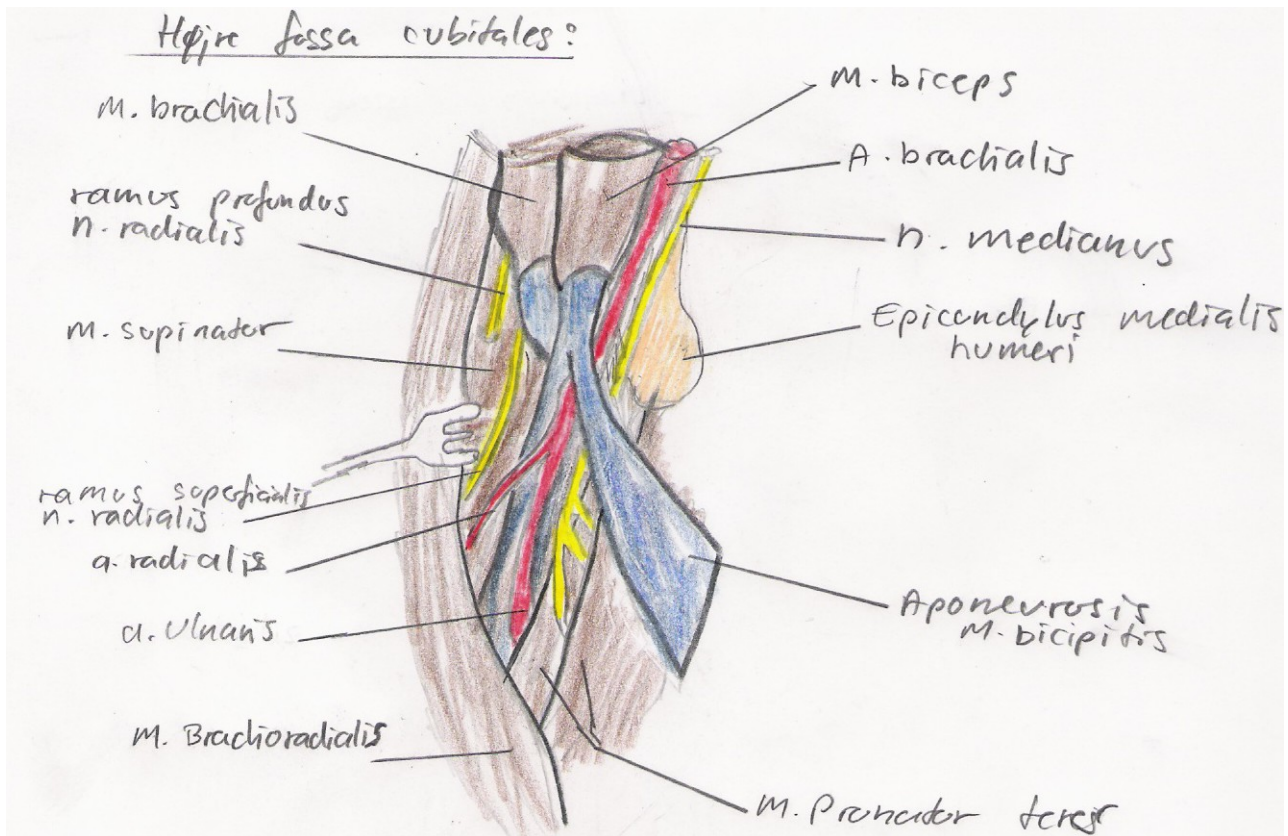 Højre fossa cubitales:
M. brachialis
ramus profundus
n. radialis
m. supinator
ramus superficialis
n. radialis
a. radialis
a. ulnaris
M. Brachioradialis
M. biceps
A. brachialis
n. medianus
Epicondylus medialis
humeri
Aponeurosis
M. bicipitis
M. Pronator teres